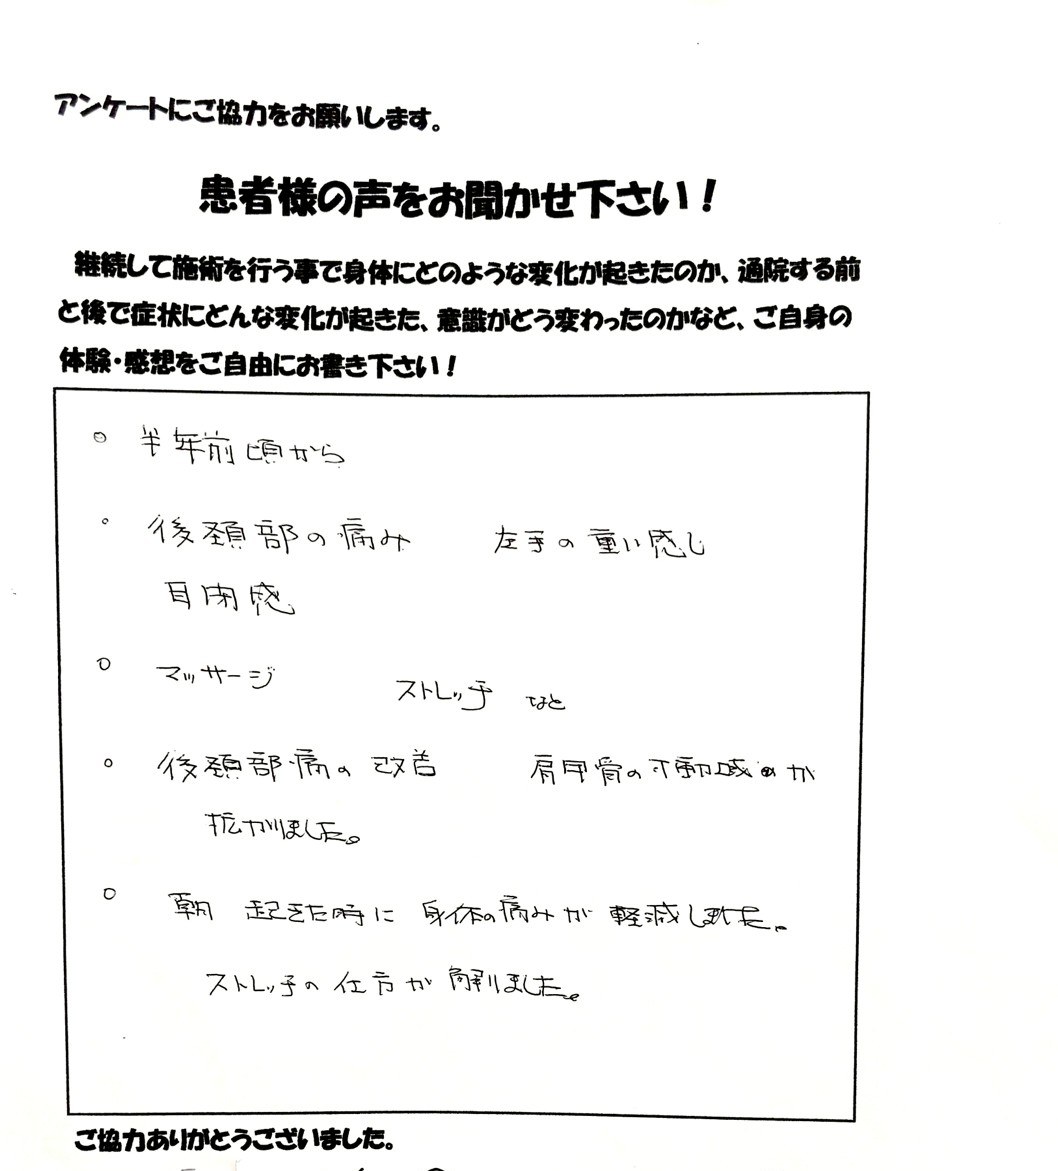 アンケートにご協力をお願いします。
患者様の声をお聞かせ下さい！
継続して施術を行う事で身体にどのような変化が起きたのか、通院する前
と後で症状にどんな変化が起きた、意識がどう変わったのかなど、ご自身の
体験・感想をご自由にお書き下さい！
○ 半年前頃から
○ 後頚部の痛み 左手の重い感じ
耳閉感
○ マッサージ ストレッチ など
○ 後頚部痛の改善 肩甲骨の可動域が
拡がりました。
○ 朝 起きた時に 身体の痛みが 軽減しました。
ストレッチの仕方が解りました。
ご協力ありがとうございました。